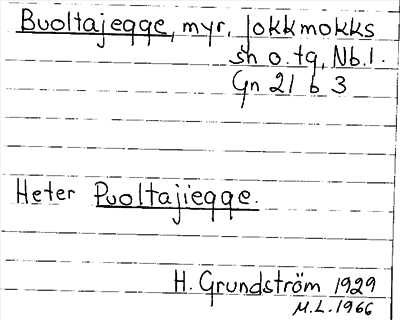 Buoltajegge, myr, Jokkmokks
sn o. tg, Nb.l.
Gn 21 b 3
Heter Puoltajiegge.
H. Grundström 1929
M.L. 1966